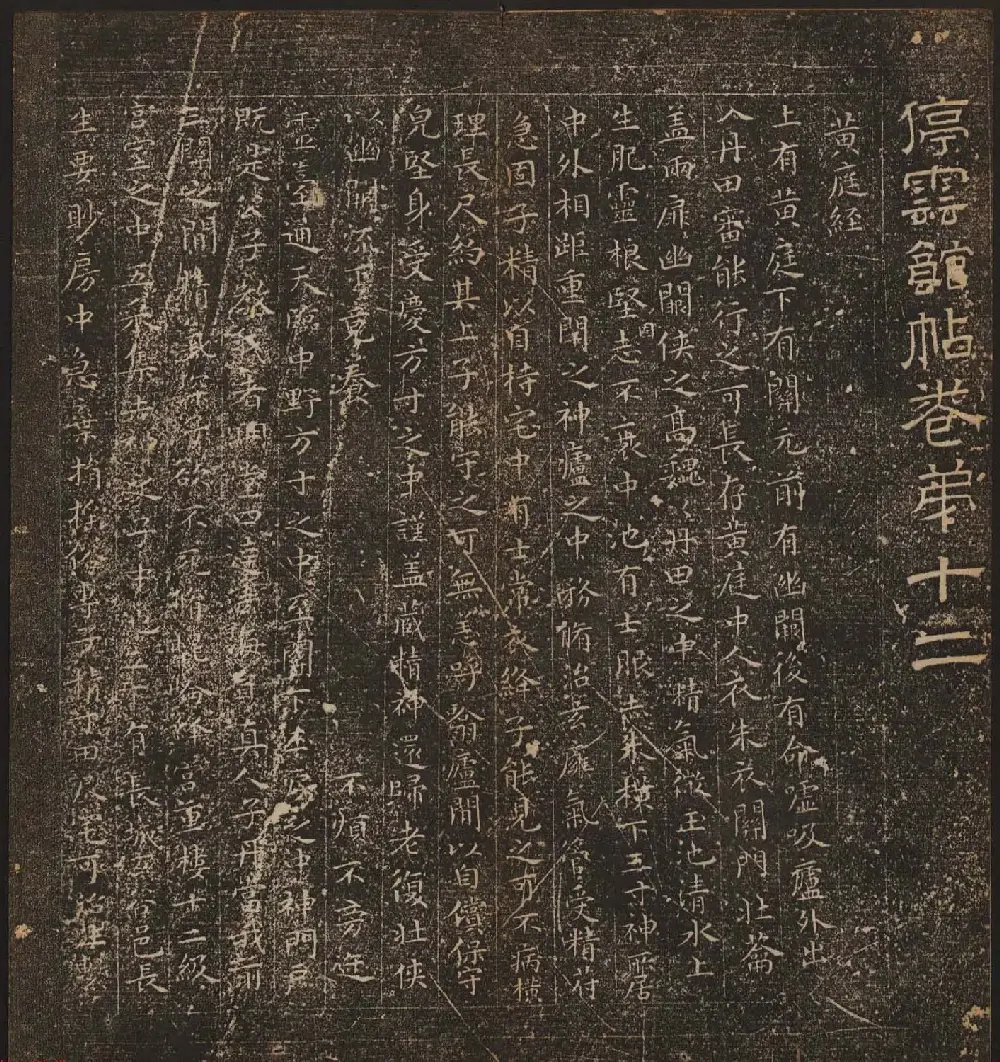 停雲館帖卷苐十二
黃庭經
上有黃庭下有關元前有幽闕後有命噓吸廬外出
入丹田審能行之可長存黃庭中人衣朱衣關門壯籥
盖兩扉幽闕俠之高巍巍丹田之中精氣微玉池清水上
生肥靈根堅志不衰中池有士服赤朱橫下三寸神所居
中外相距重閉之神廬之中務脩治玄廱氣管受精符
急固子精以自持宅中有士常衣絳子能見之可不病橫
理長尺約其上子能守之可無恙呼翕廬間以自償保守
皃堅身受慶方寸之中謹盖藏精神還歸老復壯俠
以幽闕流下竟養 不煩不旁迕
靈 至通天臨中野方寸之中至關下 房之中神門戶
既是公子教我者明堂 達 真人子丹當我前
三關之間精氣深 欲不死脩崐崙 宮重樓十二級
宮室之中五采集赤 之子中池立下有長城玄谷邑長
生要眇房中急棄捐 俗專子精寸田尺宅可治生